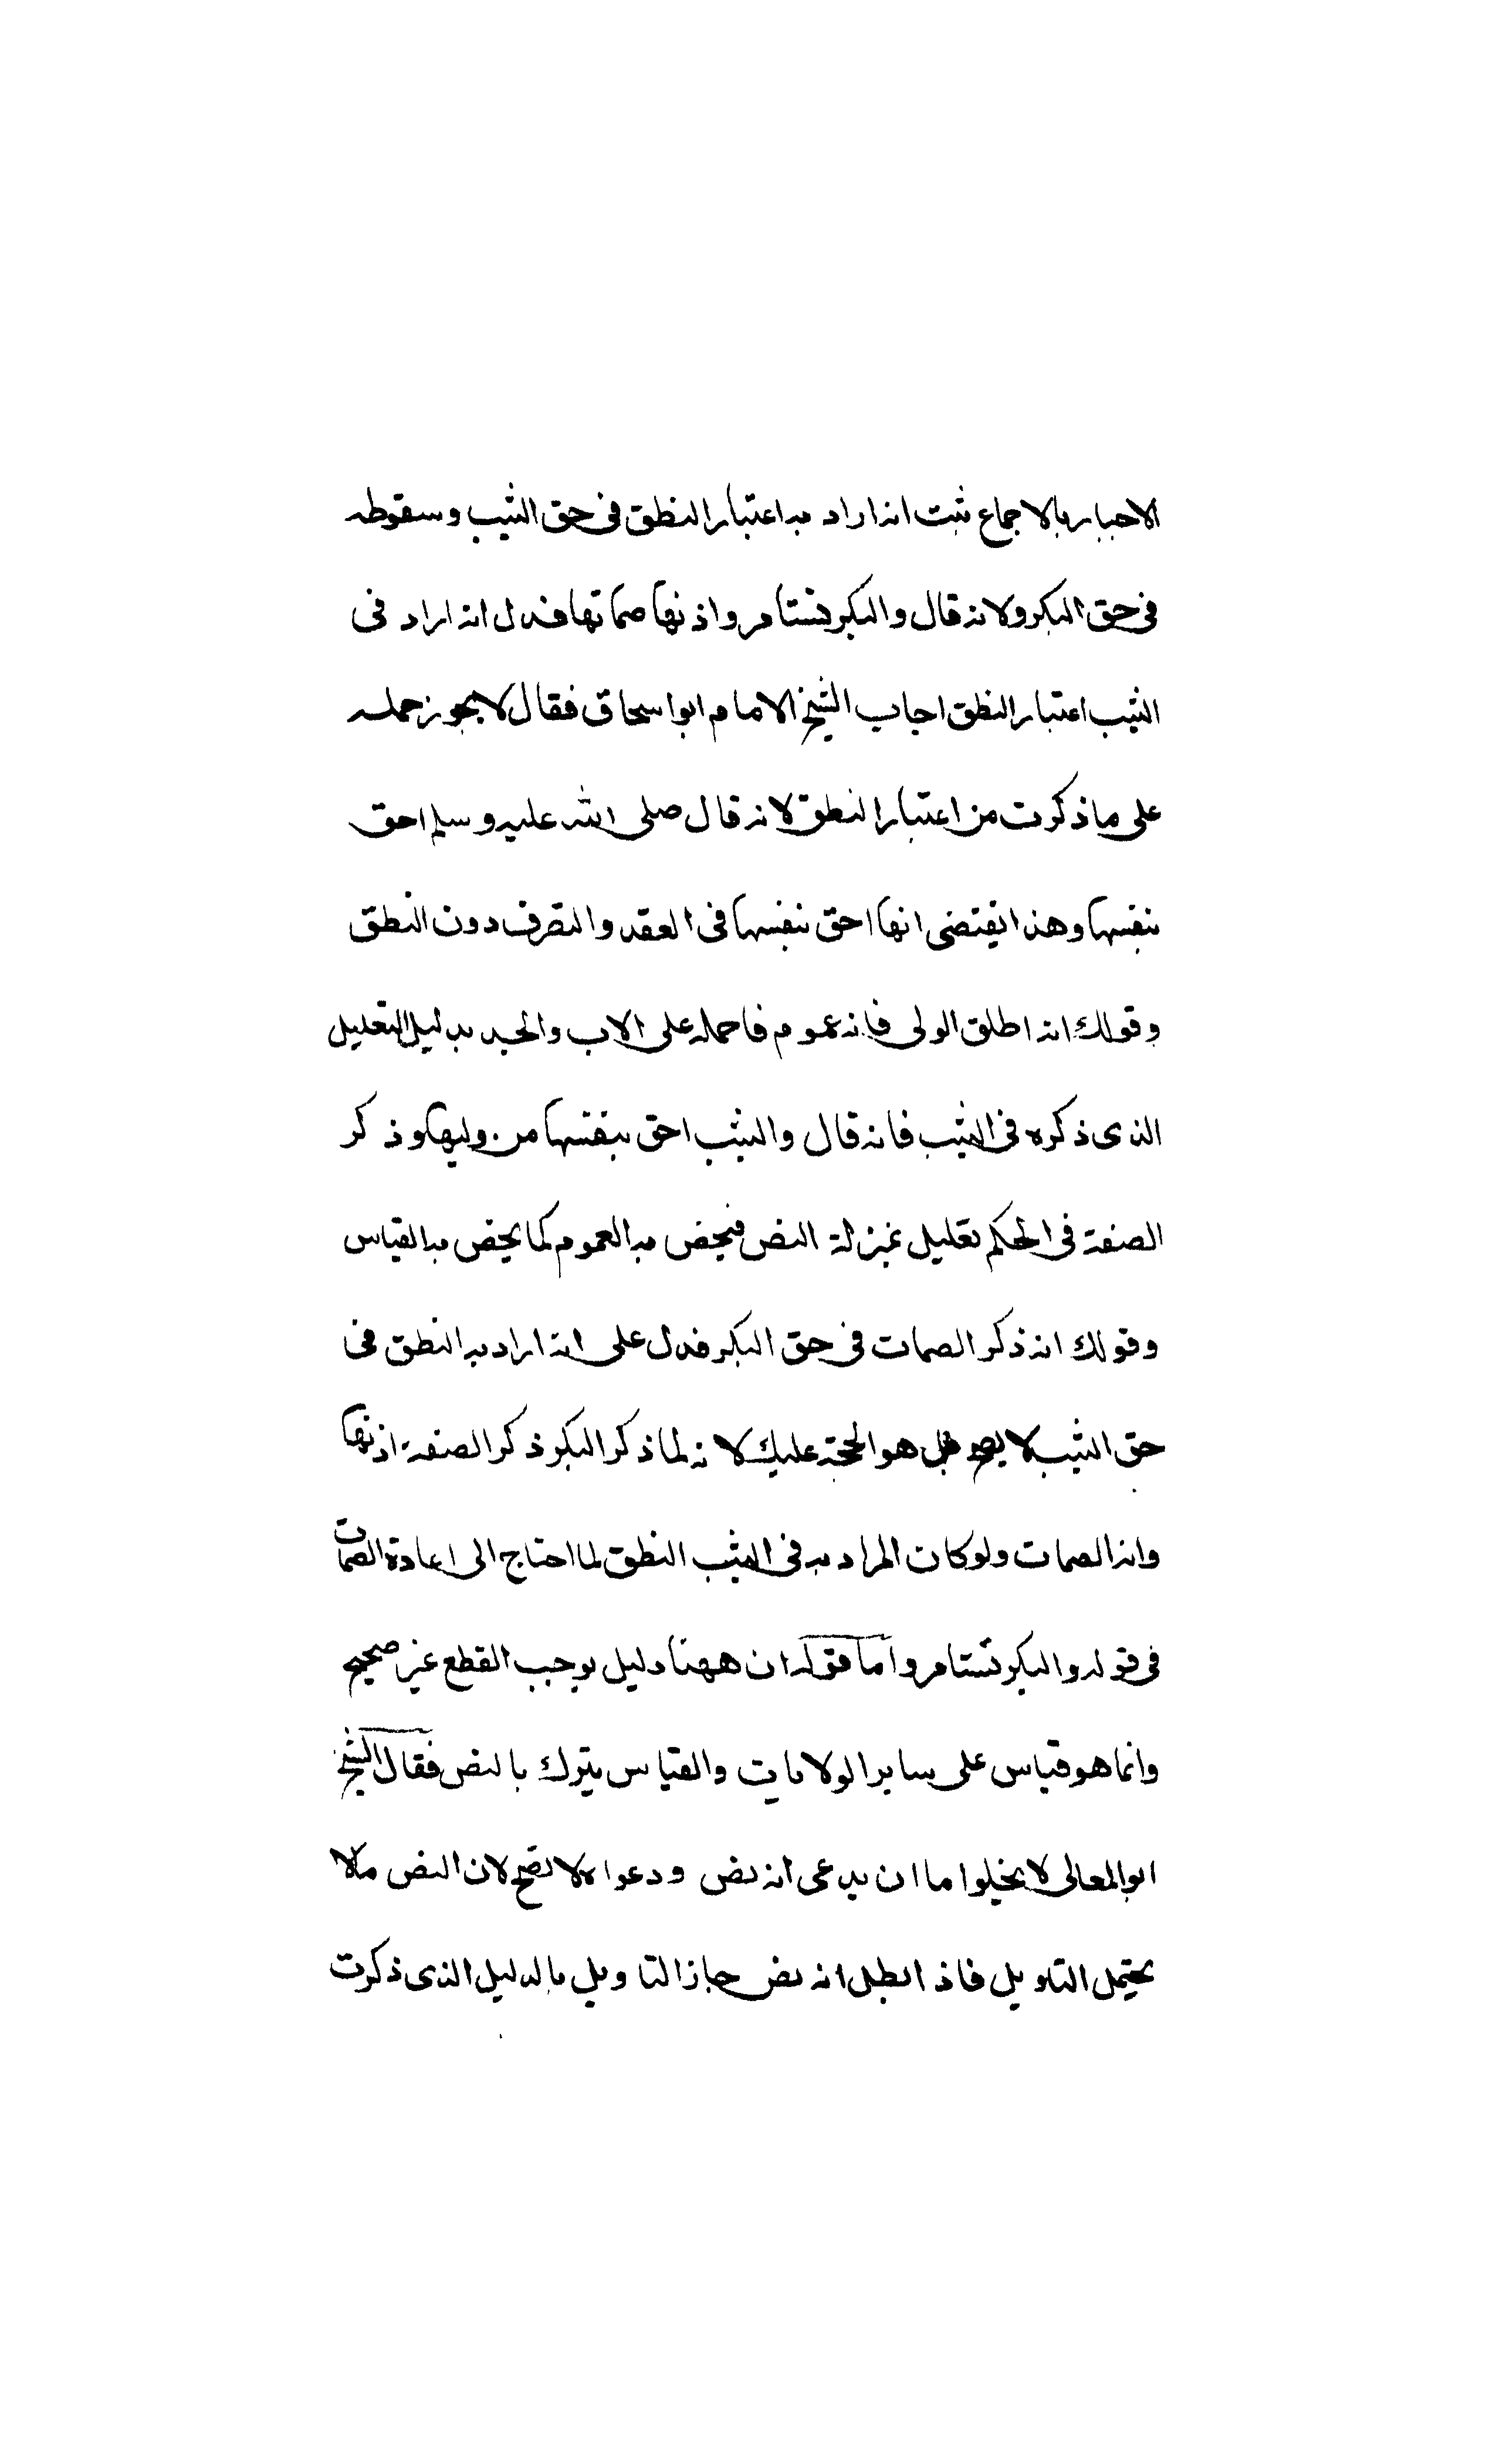 الاجبار بالاجماع ثبت انه اراد به اعتبار النطق في حق الثيب وسقوطه
في حق البكر ولانه قال والبكر تستامر واذنها صماتها فدل انه اراد في
الثيب اعتبار النطق اجاب الشيخ الامام ابوا سحاق فقال لا يجوز حمله
على ما ذكرت من اعتبار النطق لانه قال صلى الله عليه وسلم احق
بنفسها وهذا يقتضى انها احق بنفسها فى العقد والتصرف دون النطق
وقولك انه اطلق الولى فانه عموم فاحمله على الاب والجد بدليل التعليل
الذى ذكره في الثيب فانه قال والثيب احق بنفسها من وليها وذكر
الصفة فى الحكم تعليل بمنزلة النص فيخص به العموم كما يخص بالقياس
وقولك انه ذكر الصمات فى حق البكر فدل على انه اراد به النطق فى
حق الثيب لا يصح بل هو الحجة عليك لانه لما ذكر البكر ذكر الصفة اذنها
وانه الصمات ولو كان المراد به فى الثيب النطق لما احتاج الى اعادة الصمات
فى قوله والبكر تستامر واما قوله ان ههنا دليل يوجب القطع غير صحيح
وانما هو قياس على ساير الولايات والقياس يترك بالنص فقال الشيخ
ابو المعالى لا يخلوا ما ان يدعى انه نص ودعواه لا تصح لان النص ما لا
يحتمل التاويل فاذا بطل انه نص جاز التاويل بالدليل الذى ذكرت